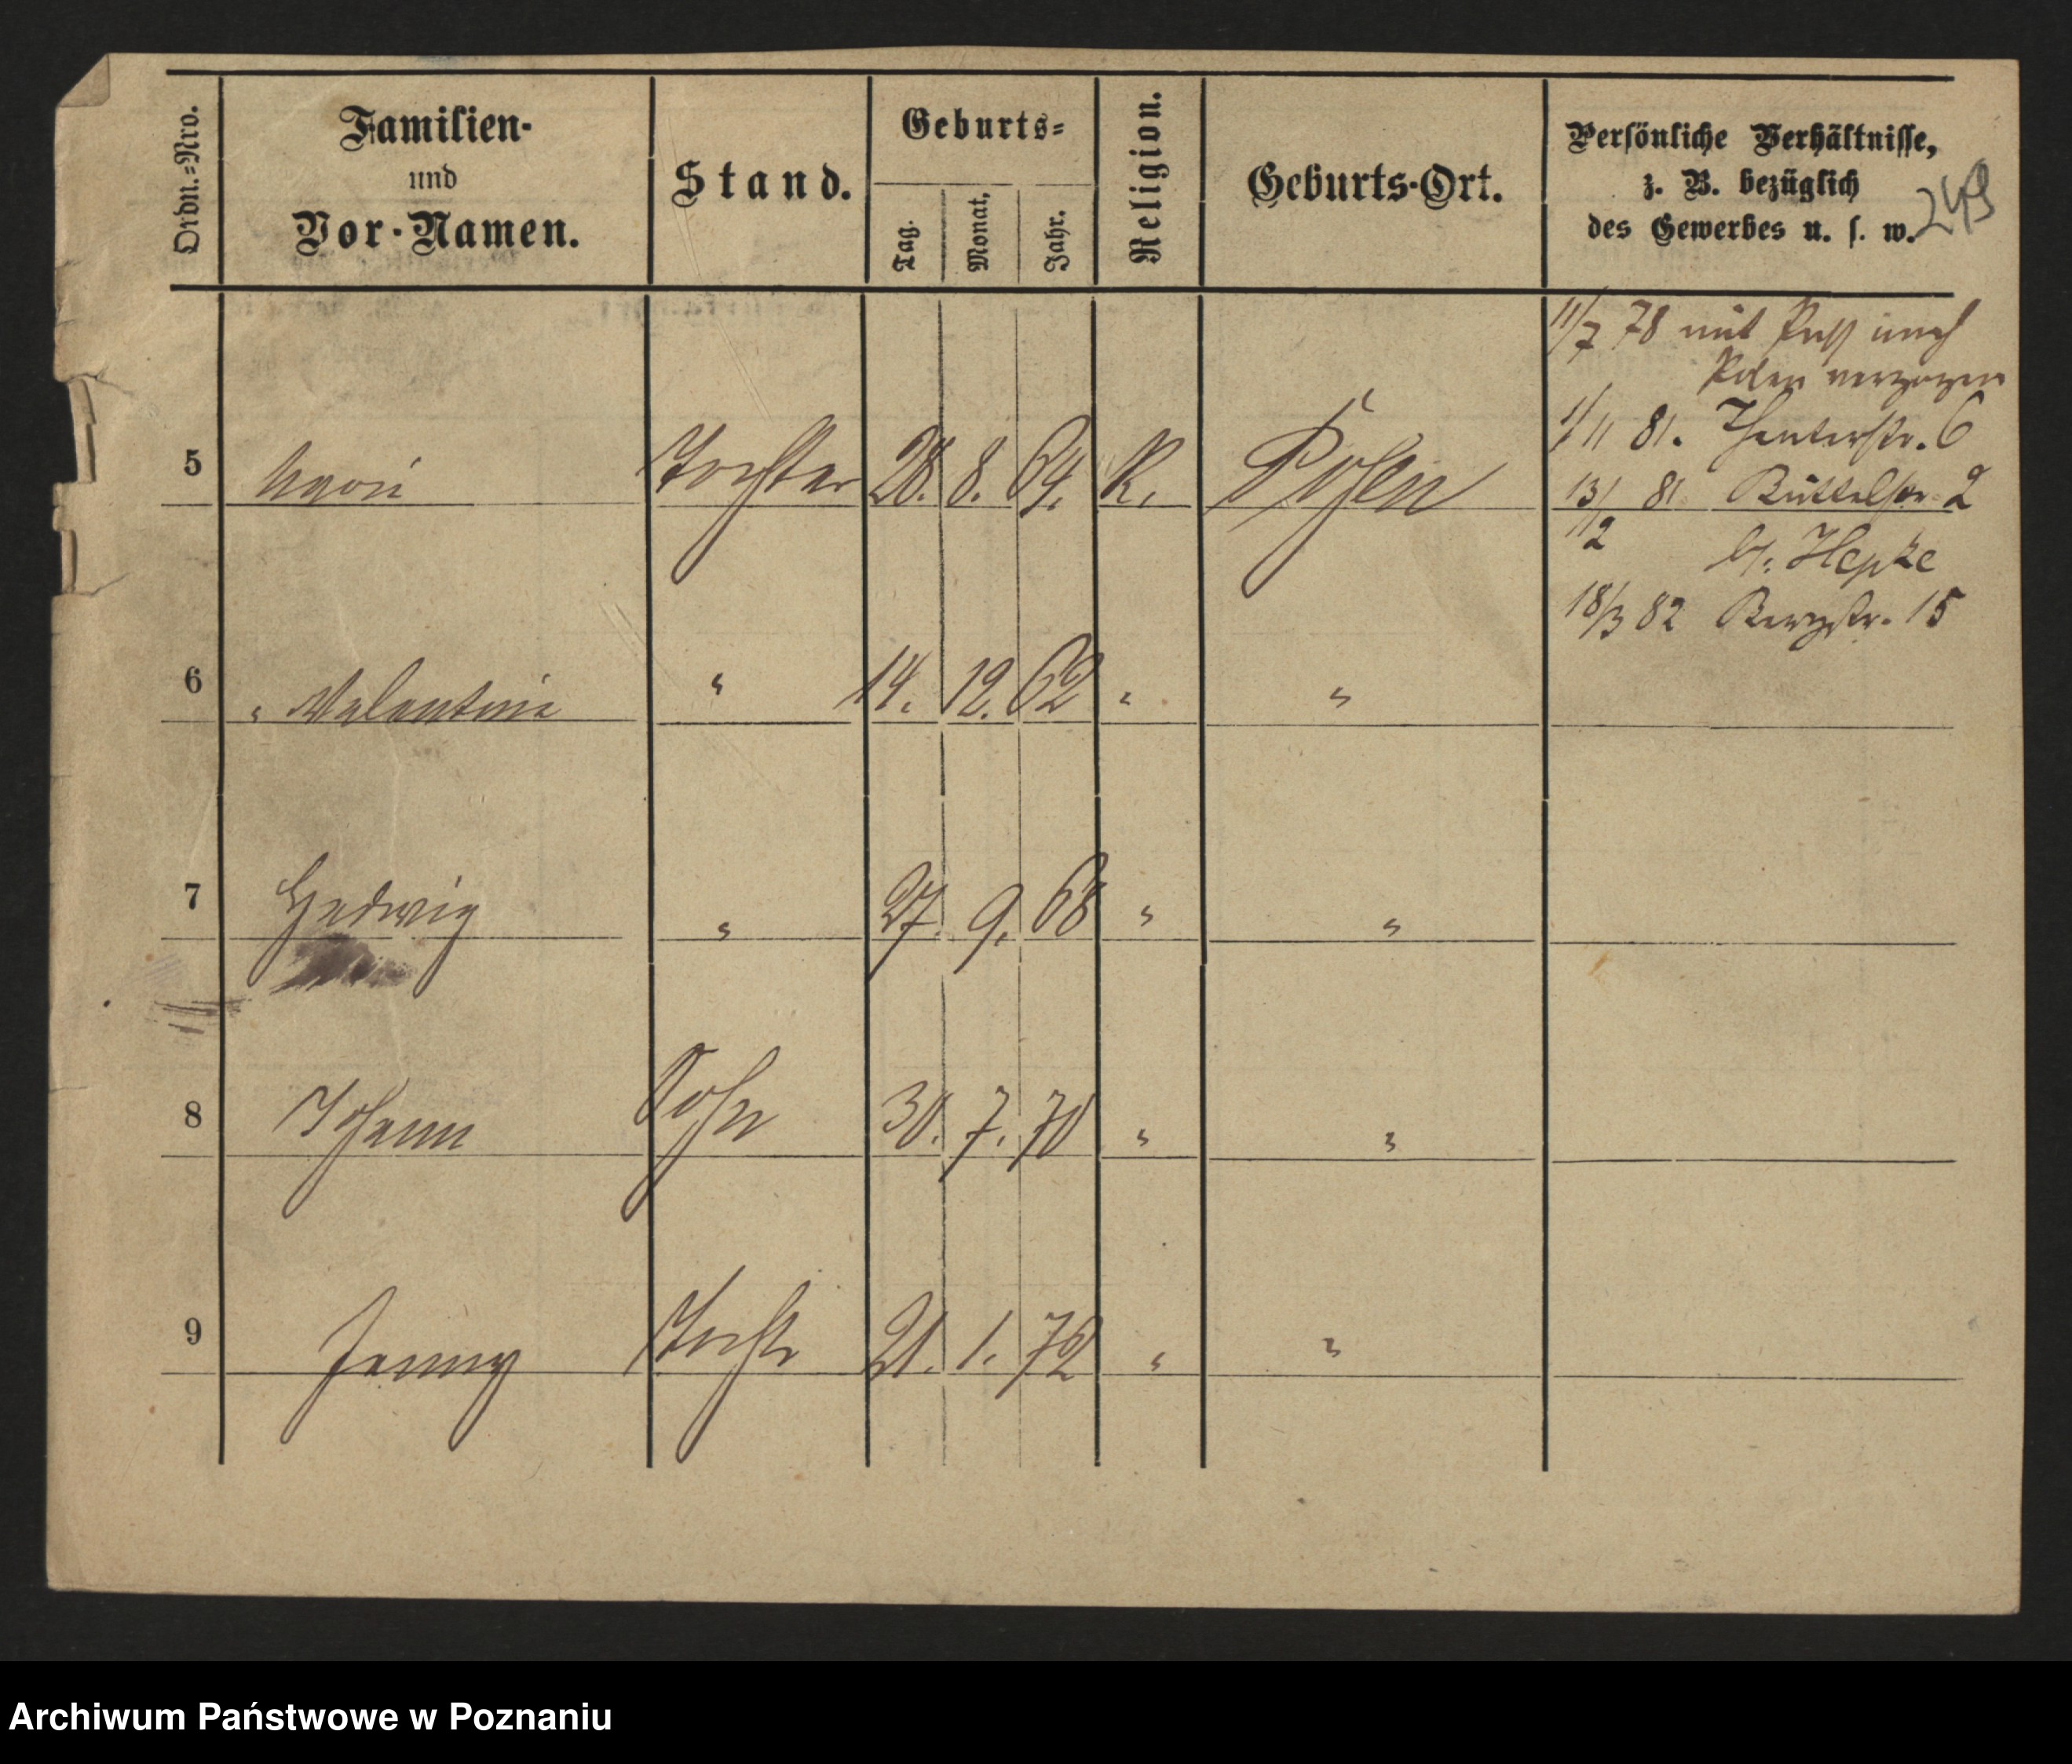 Ordn.=Nro.
Familien-
und
Vor-Namen.
Stand.
Geburts=
Tag.
Monat.
Jahr.
Religion.
Geburts-Ort.
Persönliche Verhältnisse,
z. B. bezüglich
des Gewerbes u. s. w.
249
11/7 78 mit Paß nach
Polen verzogen
1/11 81. Theaterstr. 6
13/12 81 Büttelstr. 2
b/. Hepke
18/3 82 Bergstr. 15
5 Tochter 28. 8. 64. K. Posen
6 " Valentine " 14. 12. 62 " "
7 Hedwig " 27. 9. 68 " "
8 Johann Sohn 30. 7. 70 " "
9 Jenny Tocht 21. 1. 72 " "
Archiwum Państwowe w Poznaniu